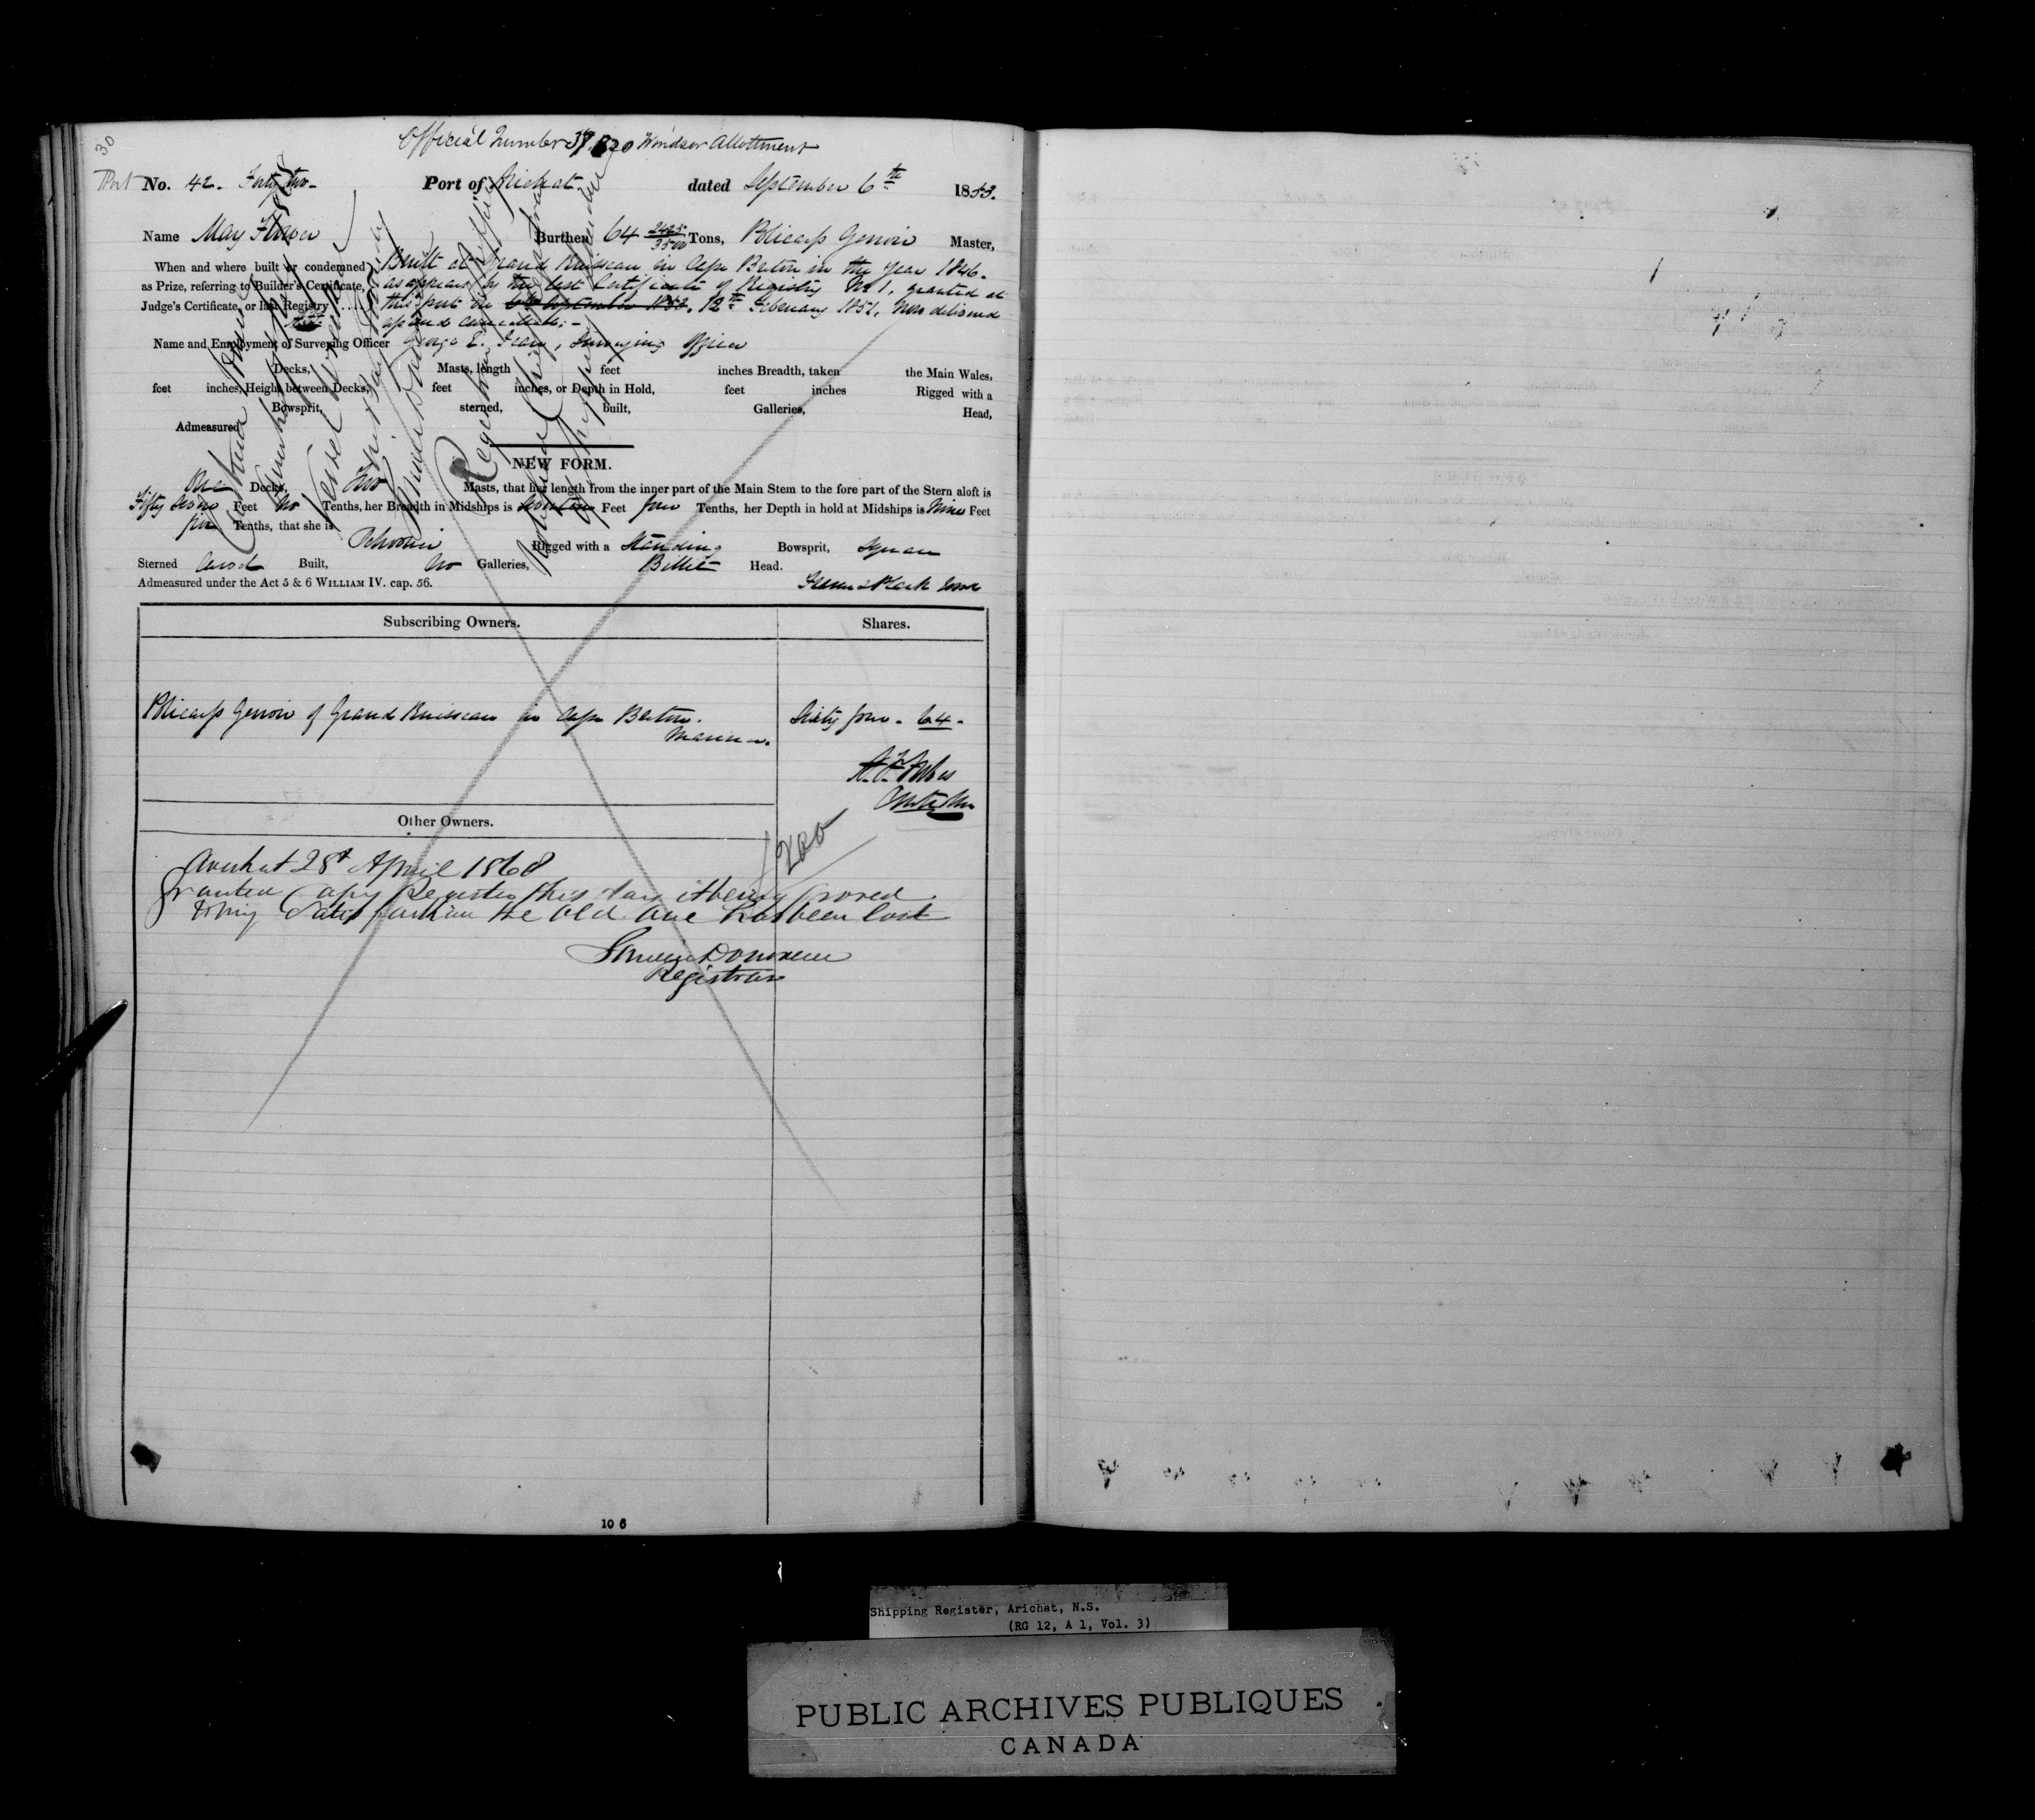 30
Official Number 37,820 Windsor Allottment
Port No. 42. Forty two- Port of Arichat dated September 6th 1853.
Name May Flower Burthen 64 2485/3500 Tons, Policarp Gerroir Master,
When and where built or condemned Built at Grand Ruisseau in Cape Breton in the year 1846.
as Prize, referring to Builder's Certificate, as appears by the last Certificate of Registry No 1. granted at
Judge's Certificate, or last Registry .... this port the 6th September 1853. 12th February 1851, now delivered
up and cancelled.-
Name and Employment of Surveying Officer George E. Jean, Surveying Officer
Decks, Masts, length feet inches Breadth, taken the Main Wales,
feet inches, Height between Decks, feet inches, or Depth in Hold, feet inches Rigged with a
Bowsprit, sterned, built, Galleries, Head,
Admeasured
NEW FORM.
One Decks, Two Masts, that her length from the inner part of the Main Stem to the fore part of the Stern aloft is
Fifty seven Feet No Tenths, her Breadth in Midships is Seventeen Feet four Tenths, her Depth in hold at Midships is Nine Feet
five Tenths, that she is
Schooner Rigged with a Standing Bowsprit, Square
Sterned Carvel Built, No Galleries, Billet Head.
Admeasured under the Act 5 & 6 WILLIAM IV. cap. 56. Frame & Plank Wood
Subscribing Owners. Shares.
Policarp Gerroir of Grand Ruisseau in Cape Breton. Sixty four - 64 -
Mariner.
Other Owners.
1200
Arichat 28t April 1868
Granted Copy Register this day it being proved
to my Satisfaction the Old One has been lost
Donovan
Registrar
10 6
Shipping Register, Arichat, N.S.
(RG 12, A 1, Vol. 3)
PUBLIC ARCHIVES PUBLIQUES
CANADA